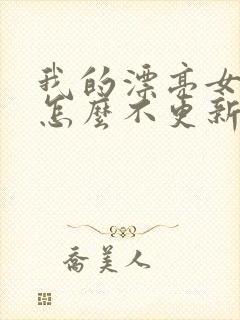 我的漂亮女
怎麼不更新
喬美人